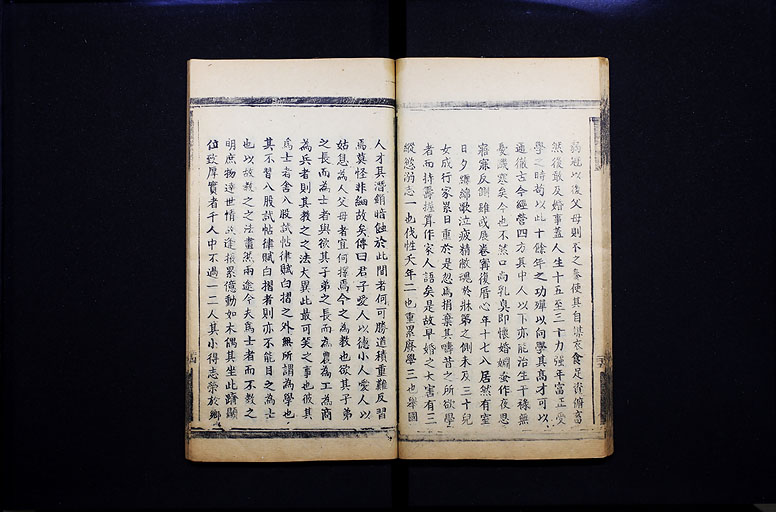 弱冠以後父母則不之養使其自謀衣食足資俯畜
然後敢及婚事蓋人生十五至三十力強年富正受
學之時苟以此十餘年之功殫以向學其高才可以
通儀古今經營四方其中人以下亦能治生干祿無
憂飢寒矣今也不然口尚乳臭即懷婚姻蚤作夜思
寤寐反側雖或展卷寗復厝心年十七八居然有室
日夕纏綿歌泣疲精敝魂於牀笫之側未及三十兒
女成行家累日重於是忽焉捐棄其疇昔之所欲學
者而持籌握算作家人語矣是故早婚之大害有三
縱慾溺志一也伐性夭年二也重累廢學三也舉國
人才其潛銷暗蝕於此間者何可勝道積重難反習
焉莫怪非細故矣傳曰君子愛人以德小人愛人以
姑息為人父母者宜何擇焉今之為教也欲其子弟
之長而為士者與欲其子弟之長而為農為工為商
為兵者則其教之之法大異此最可笑之事也彼其
為士者舍八股試帖律賦白摺之外無所謂為學也
其不習八股試帖律賦白摺者則亦不能目之為士
也以故教之之法畫然兩途今夫為士者而不教之
明庶物達世情 逢 累億動如木偶其坐此躋顯
位致厚實者千人中不過一二人其小得志榮於鄉